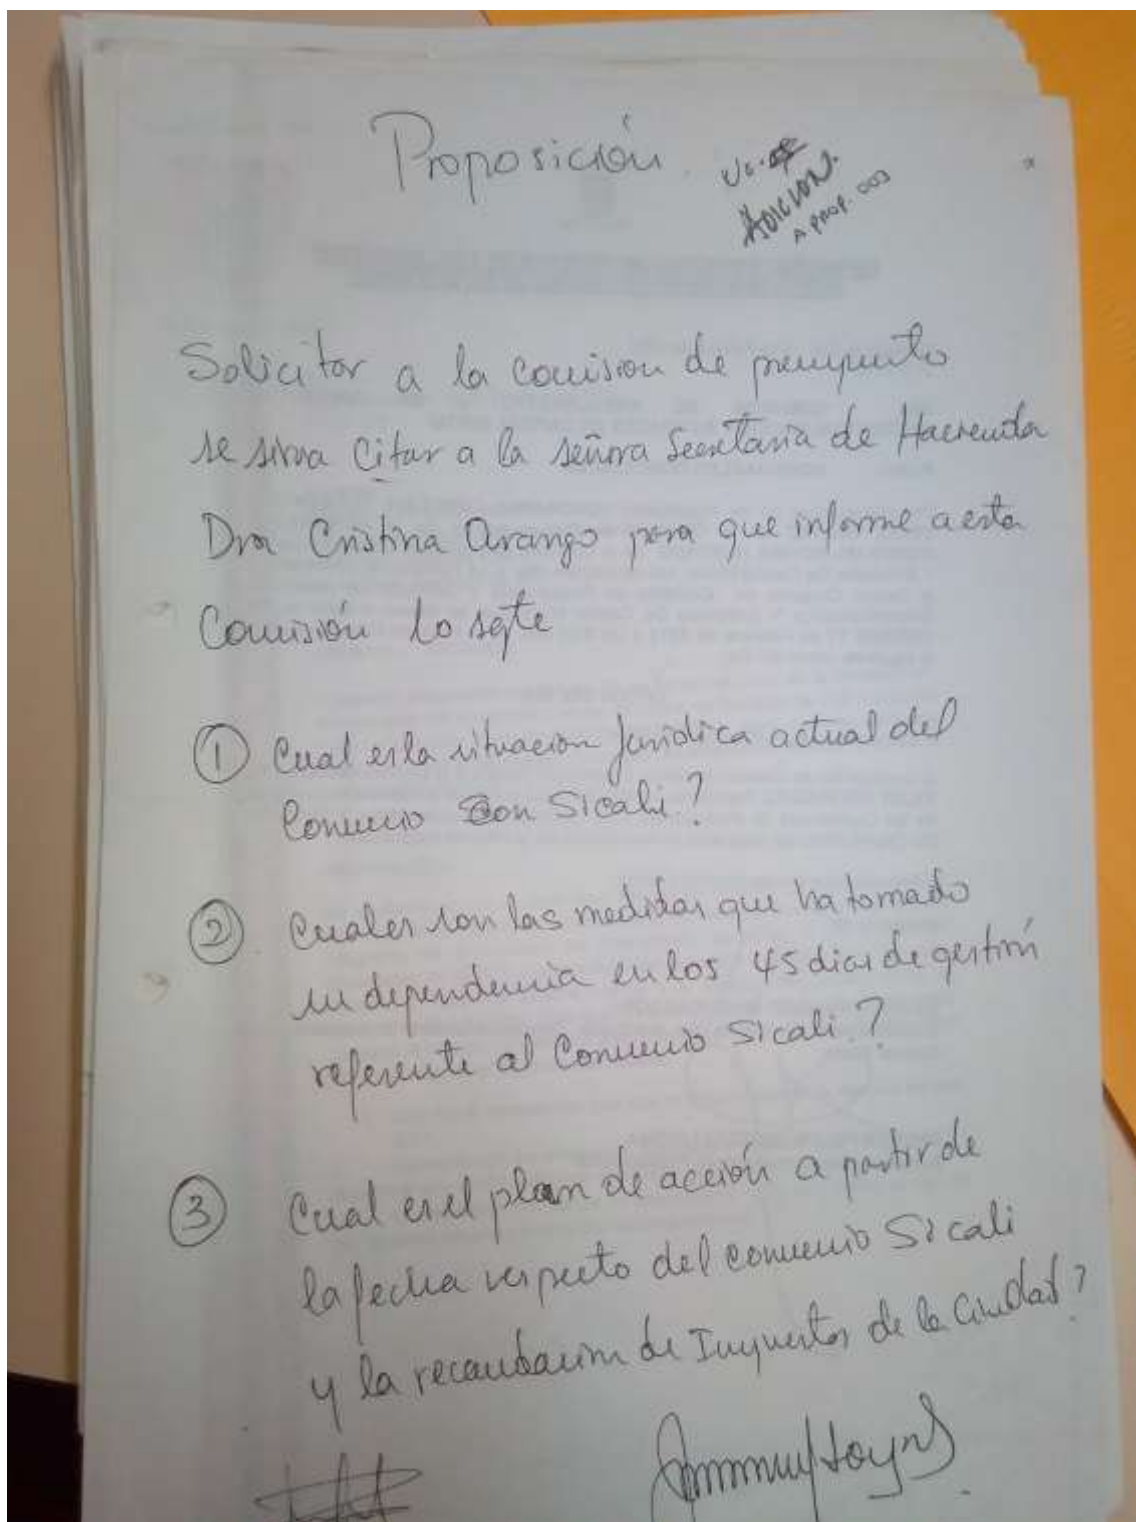 Proposición.
ADICION.
A PROP. 003
Solicitar a la comision de presupuesto
se sirva Citar a la señora Secretaria de Hacienda
Dra Cristina Arango para que informe a esta
Comisión lo sgte
① Cual es la situacion Juridica actual del
Convenio Con Sicali?
②. Cuales son las medidas que ha tomado
su dependencia en los 45 dias de gestión
referente al Convenio Sicali?
③ Cual es el plan de acción a partir de
la fecha respecto del convenio Sicali
y la recaudacion de Impuestos de la Ciudad?